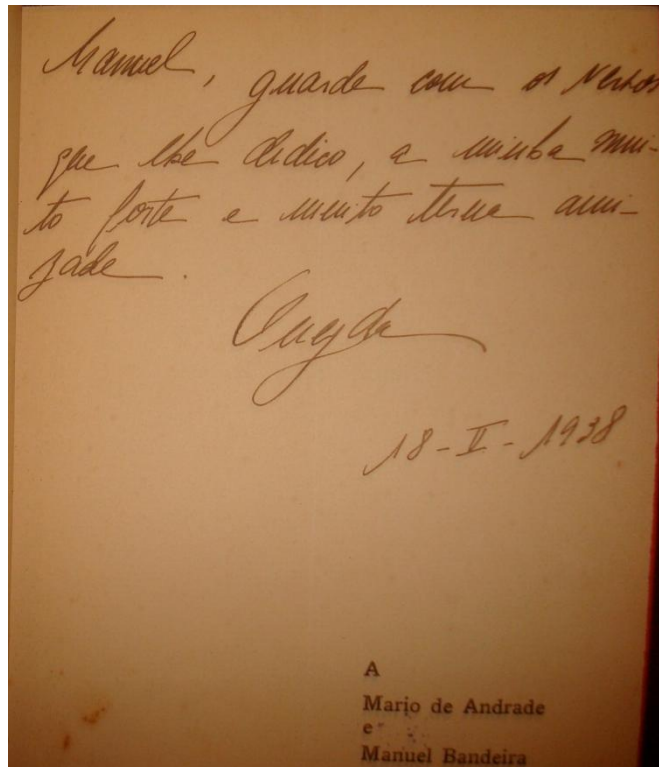 Manuel, guarde com os versos
que lhe dedico, a minha mui-
to forte e muito terna ami-
zade.
Oneyda
18-II-1938
A
Mario de Andrade
e
Manuel Bandeira